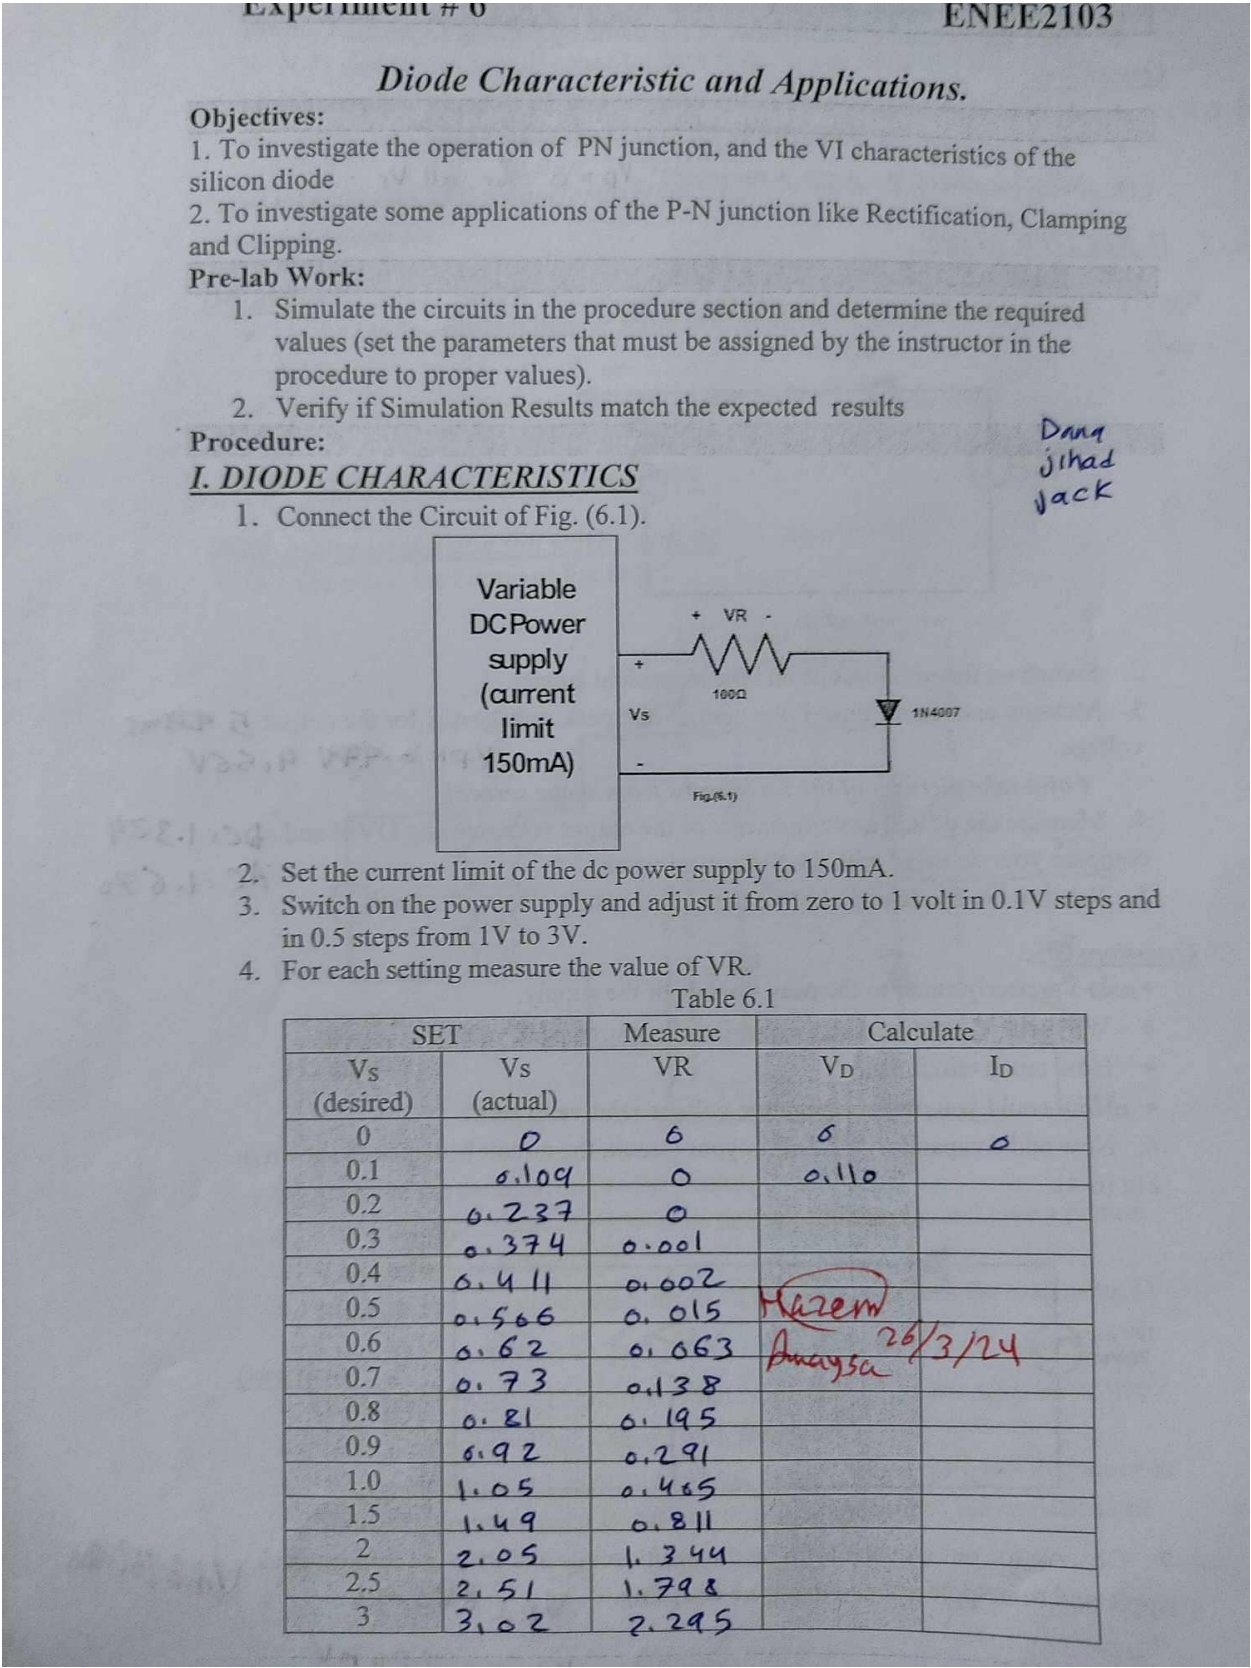 Experiment # 6 ENEE2103
Diode Characteristic and Applications.
Objectives:
1. To investigate the operation of PN junction, and the VI characteristics of the
silicon diode
2. To investigate some applications of the P-N junction like Rectification, Clamping
and Clipping.
Pre-lab Work:
1. Simulate the circuits in the procedure section and determine the required
values (set the parameters that must be assigned by the instructor in the
procedure to proper values).
2. Verify if Simulation Results match the expected results
Procedure:
Dana
jihad
Jack
I. DIODE CHARACTERISTICS
1. Connect the Circuit of Fig. (6.1).
Variable
DC Power
supply
(current
limit
150mA)
+ VR -
100Ω
+
Vs
-
1N4007
Fig.(6.1)
2. Set the current limit of the dc power supply to 150mA.
3. Switch on the power supply and adjust it from zero to 1 volt in 0.1V steps and
in 0.5 steps from 1V to 3V.
4. For each setting measure the value of VR.
Table 6.1
SET Measure Calculate
Vs Vs VR VD ID
(desired) (actual)
0 0 0 0 0
0.1 0.109 0 0.110
0.2 0.237 0
0.3 0.374 0.001
0.4 0.411 0.002
0.5 0.506 0.015 Hazem
0.6 0.62 0.063 26/3/24
0.7 0.73 0.138
0.8 0.81 0.195
0.9 0.92 0.291
1.0 1.05 0.405
1.5 1.49 0.811
2 2.05 1.344
2.5 2.51 1.798
3 3.02 2.295